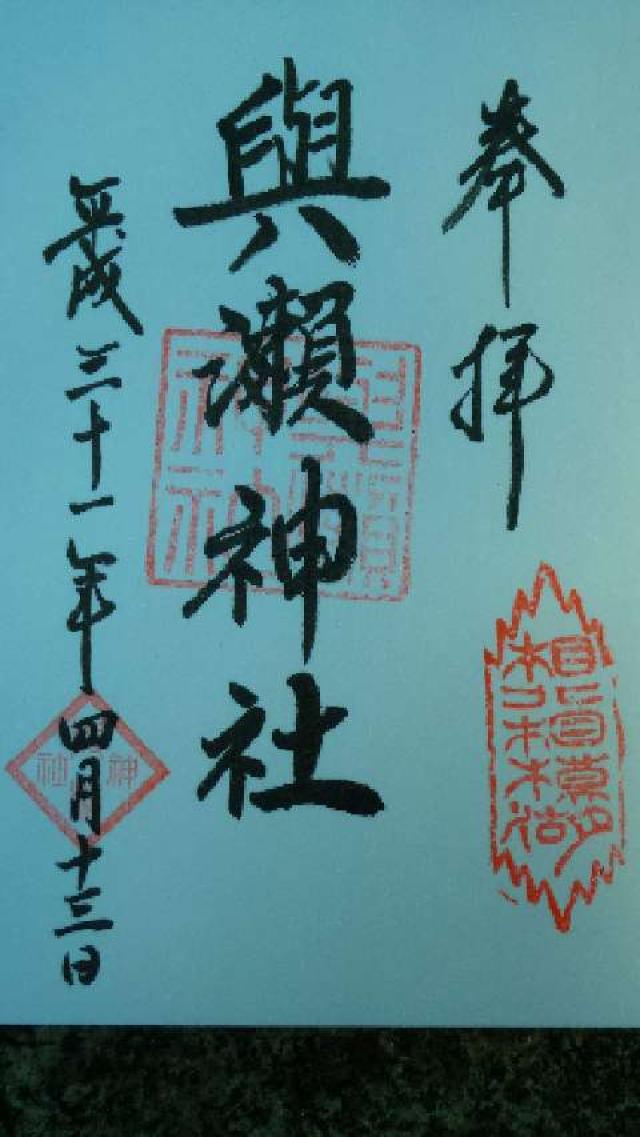 奉拝
與瀬神社
平成三十一年四月十三日
神社